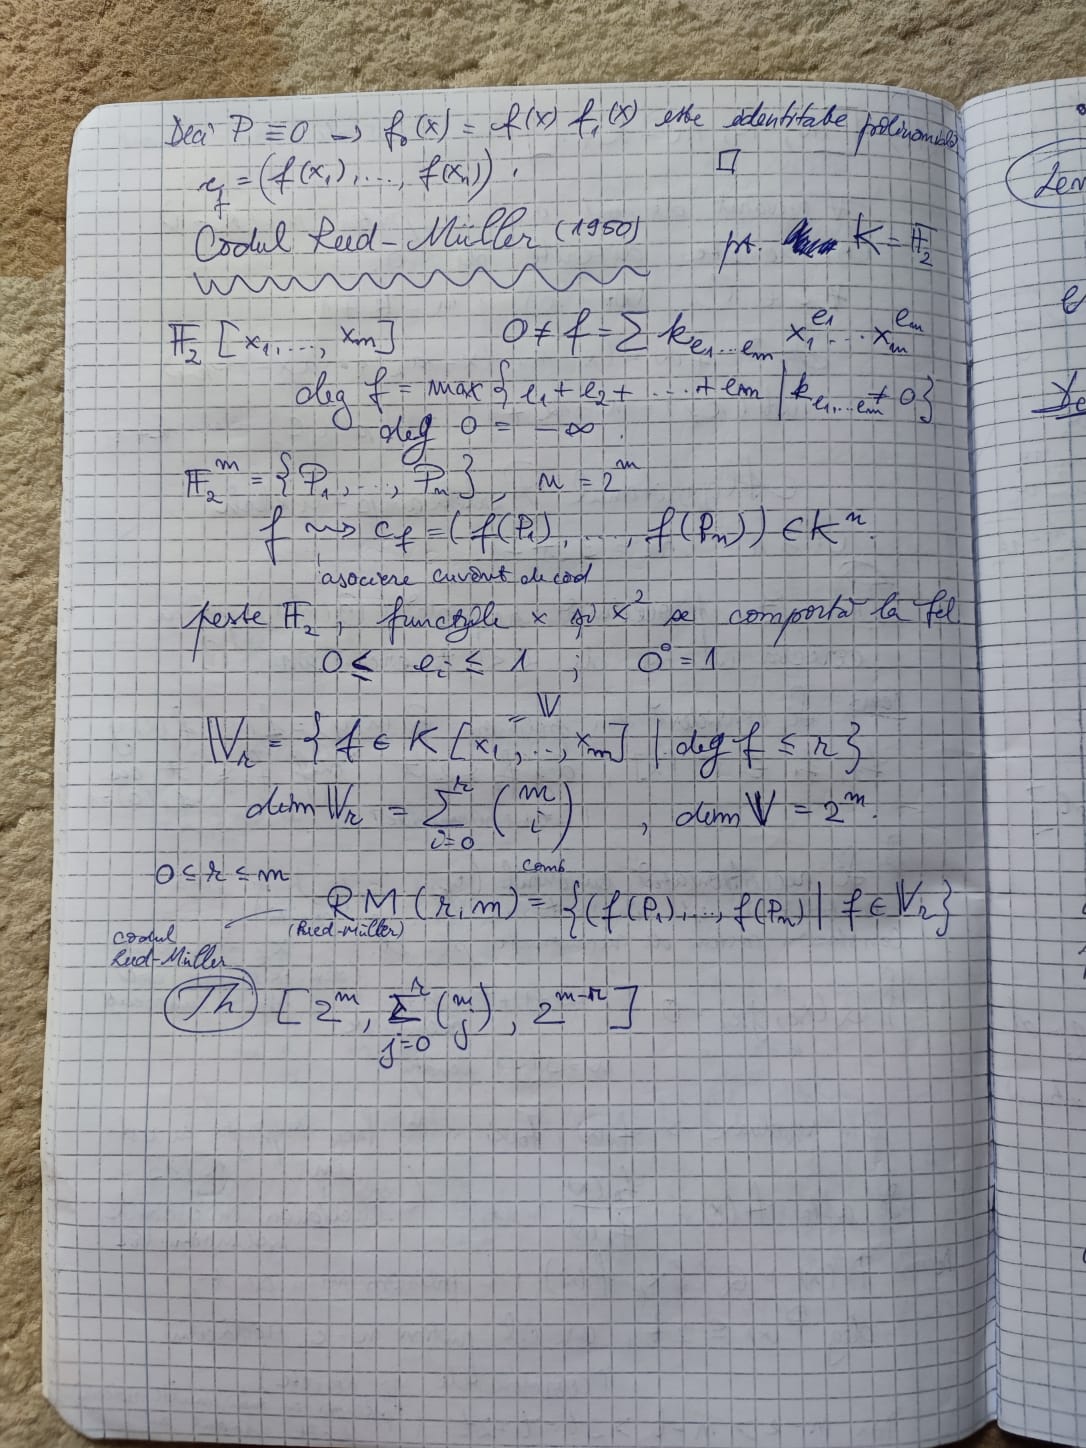 Deci P ≡ 0 → f₀(x) = f(x) f₁(x) este identitate polinomială
c_f = (f(x₁), ..., f(xₙ)). □
Codul Reed-Müller (1950) pt. K = 𝔽₂
𝔽₂ [x₁, ..., xₘ] 0 ≠ f = Σ k_{e₁...eₘ} x₁^{e₁} ... xₘ^{eₘ}
deg f = max { e₁ + e₂ + ... + eₘ | k_{e₁,...eₘ} ≠ 0}
deg 0 = -∞.
𝔽₂^m = {P₁, ..., Pₙ}, n = 2^m
f ⇝ c_f = (f(P₁), ..., f(Pₙ)) ∈ Kⁿ.
asociere cuvânt de cod
peste 𝔽₂, funcțiile x și x² se comportă la fel
0 ≤ eᵢ ≤ 1 ; 0⁰ = 1
= 𝕍
𝕍ᵣ = { f ∈ K [x₁, ..., xₘ] | deg f ≤ r}
dim 𝕍ᵣ = Σ_{i=0}^{r} (m i), dim 𝕍 = 2^m.
comb
0 ≤ r ≤ m
RM (r, m) = {(f(P₁), ..., f(Pₙ) | f ∈ 𝕍ᵣ}
(Reed-Müller)
codul
Reed-Müller
Th [2^m, Σ_{j=0}^{r} (m j), 2^{m-r}]